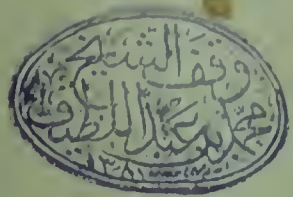 وقف الشيخ
محمد بن عبد اللطيف
١٣٨١